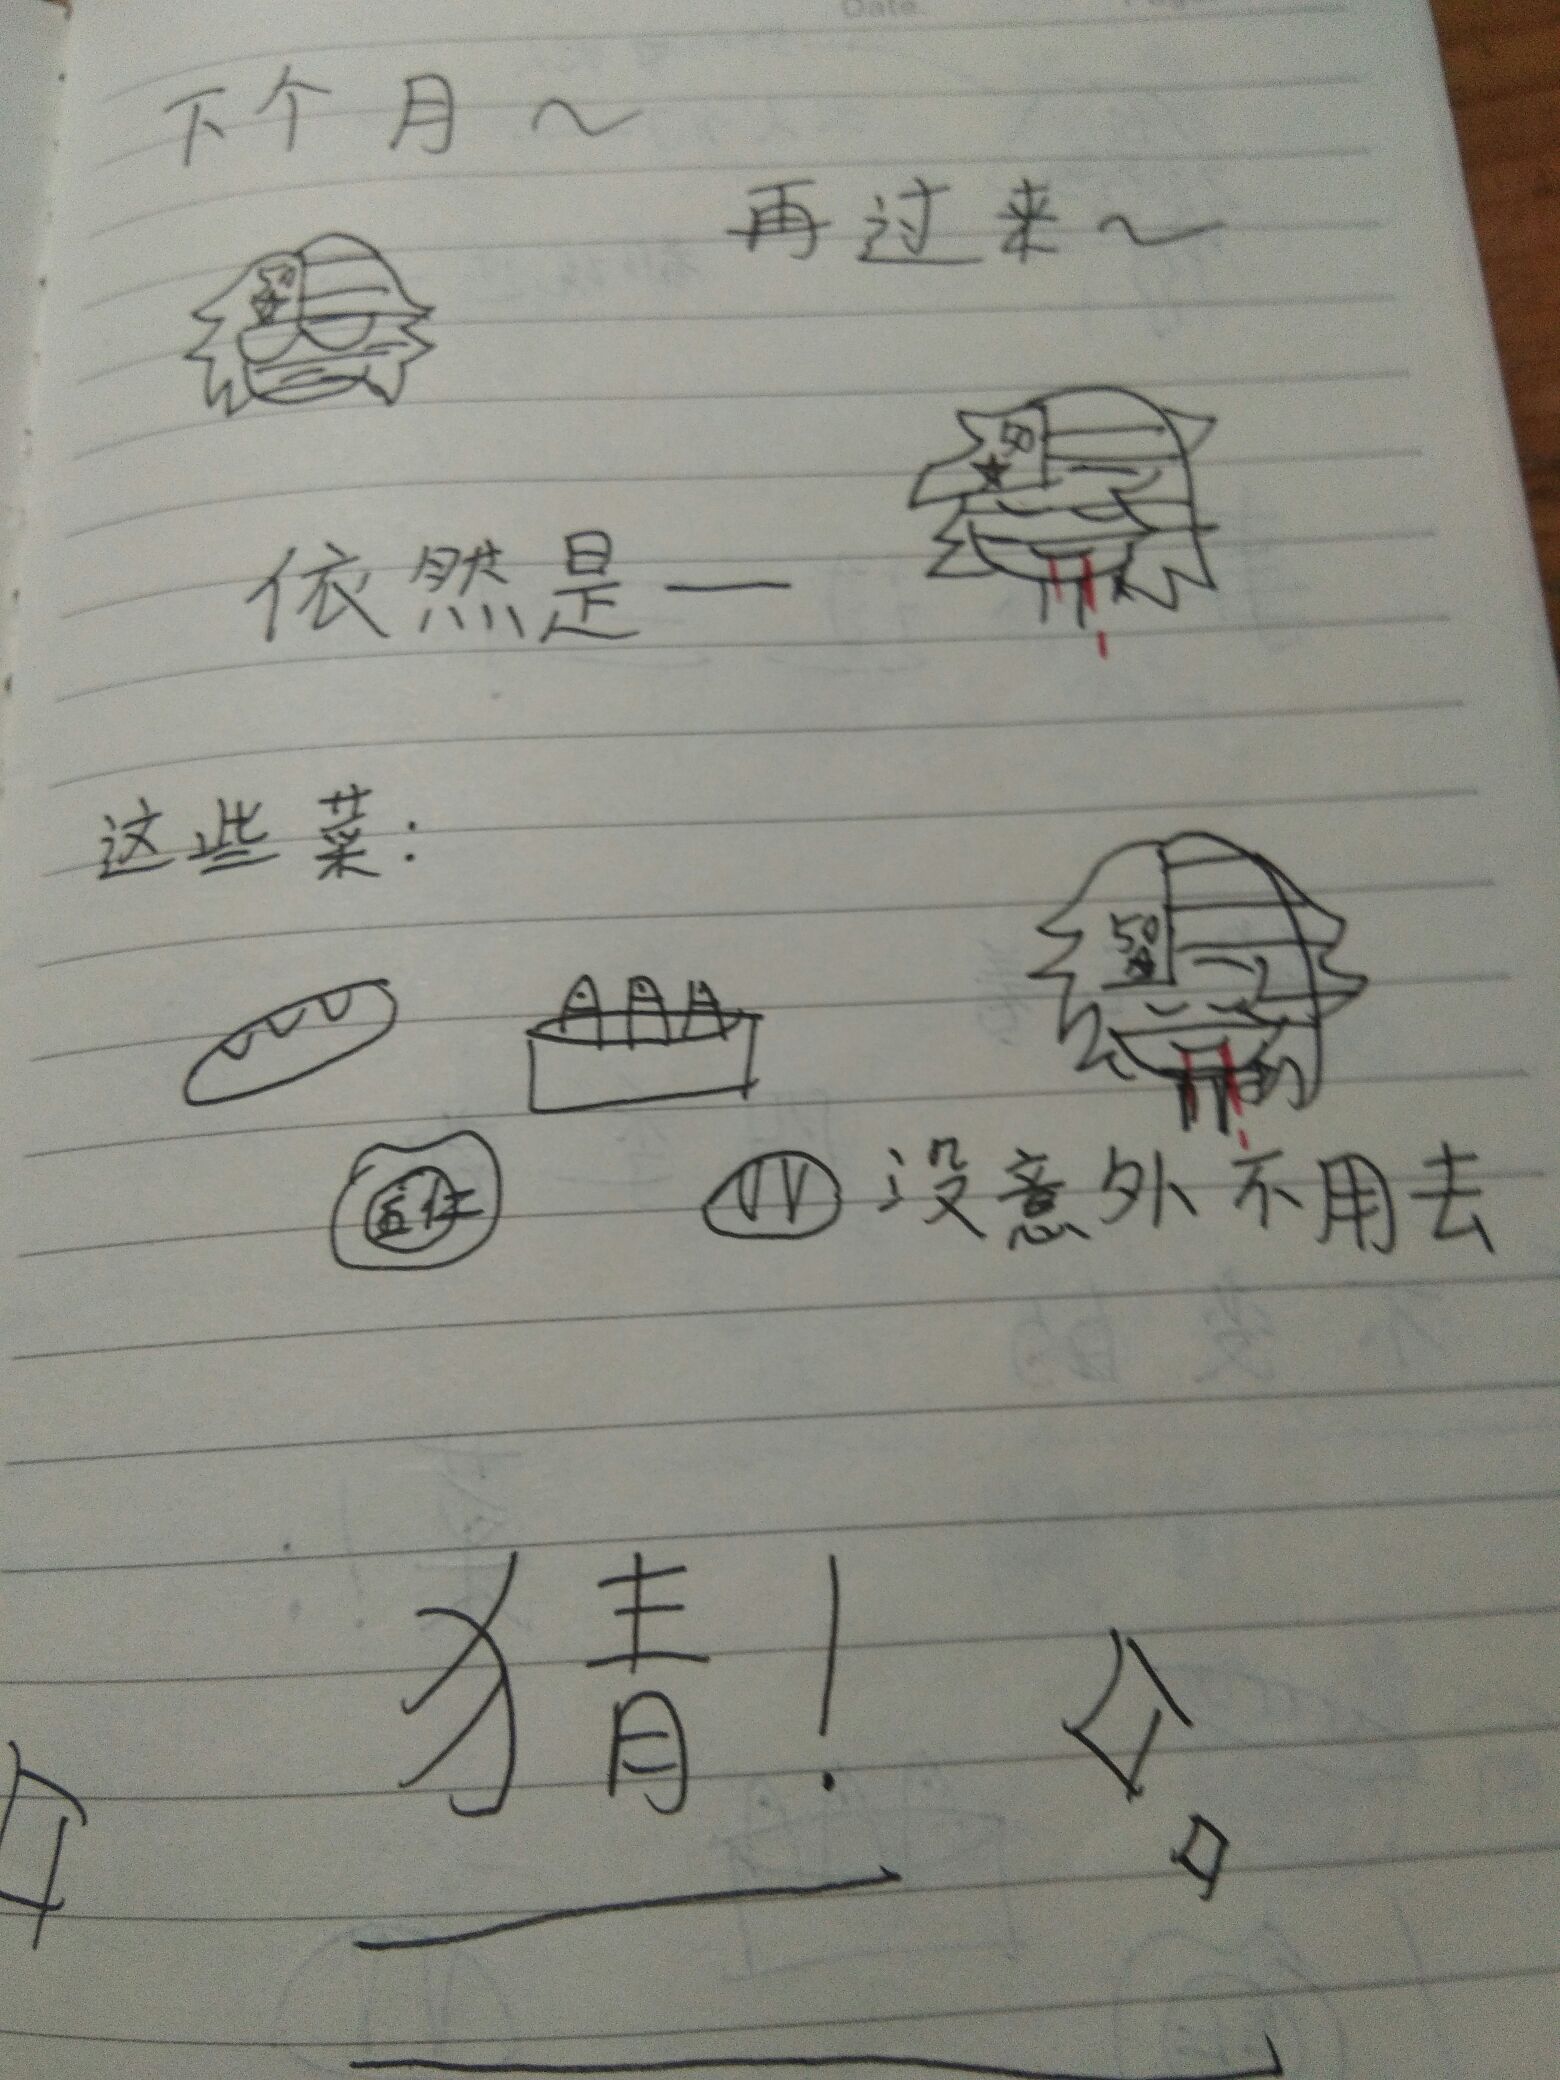 下个月～
再过来～
50
50
依然是一
这些菜：
50
五仁
没意外不用去
猜！